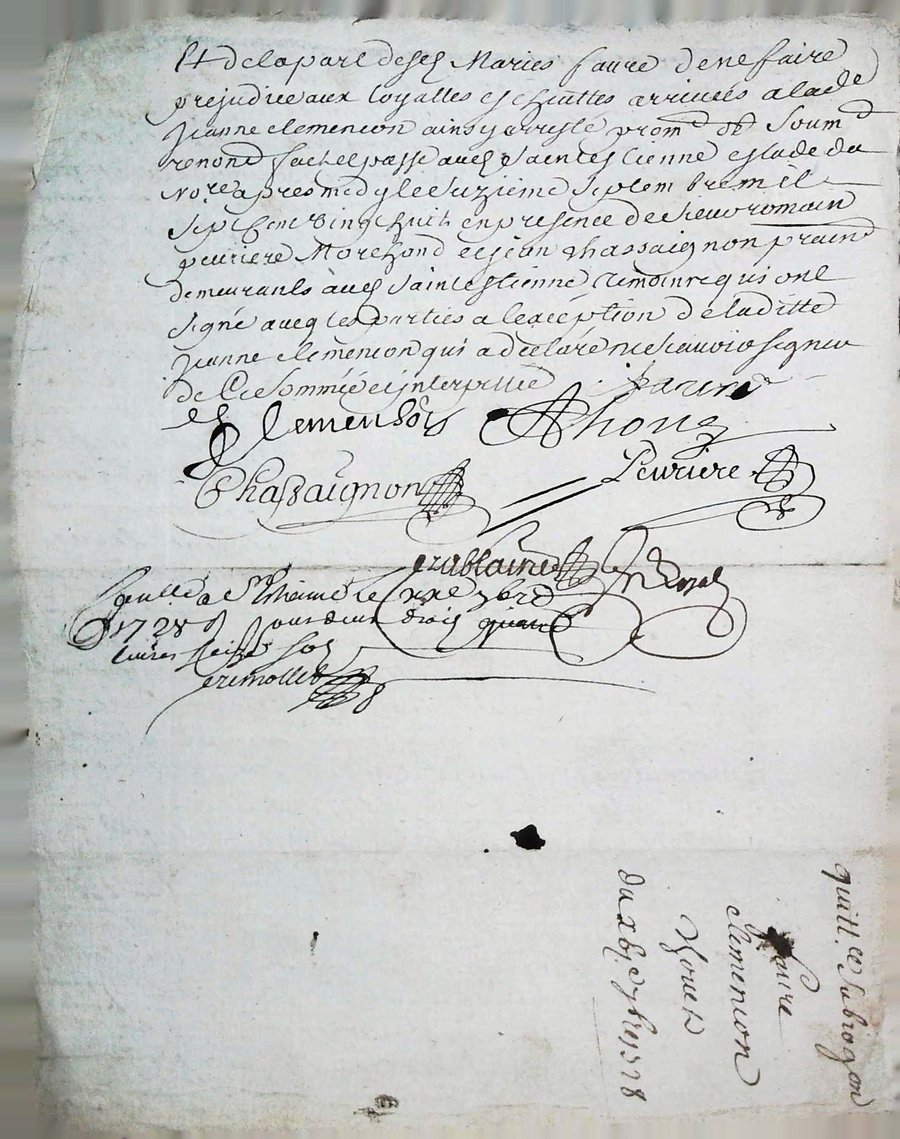 Et de la part desd Maries faure de ne faire
prejudice aux loyalles eschuttes arrivées a lade
Jeanne clemencon ainsy arresté prom d ob Soum d
renond fait et passé aud Saint estienne estude du
No.re apres midy le seizieme Septembre mil
Sept Cent vingt huit en presence de Sieur romain
peuriere Marchand et jean Chassaignon pratn
demeurants aud Saint estienne temoins qui ont
signé avecq les parties a lexeception de laditte
Jeanne clemencon qui a declaré ne sçavoir signer
de Ce sommée et interpellée faure
Clemensõn Thoue
Chassaignon Peuriere
erablaine
Conllé a St Etienne le xxe 7bre
1728 pour deux droits
livres seize sols
grimollet
quitt. et subrogaon
faure
clemencon
Thoue
du xbj 7bre 1728